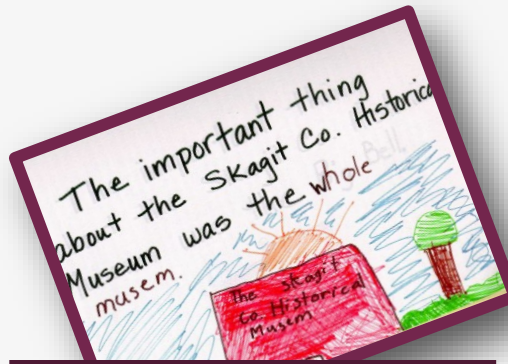 The important thing
about the Skagit Co. Historica
Museum was the whole
musem.
The skagit
Co. Historical
Musem